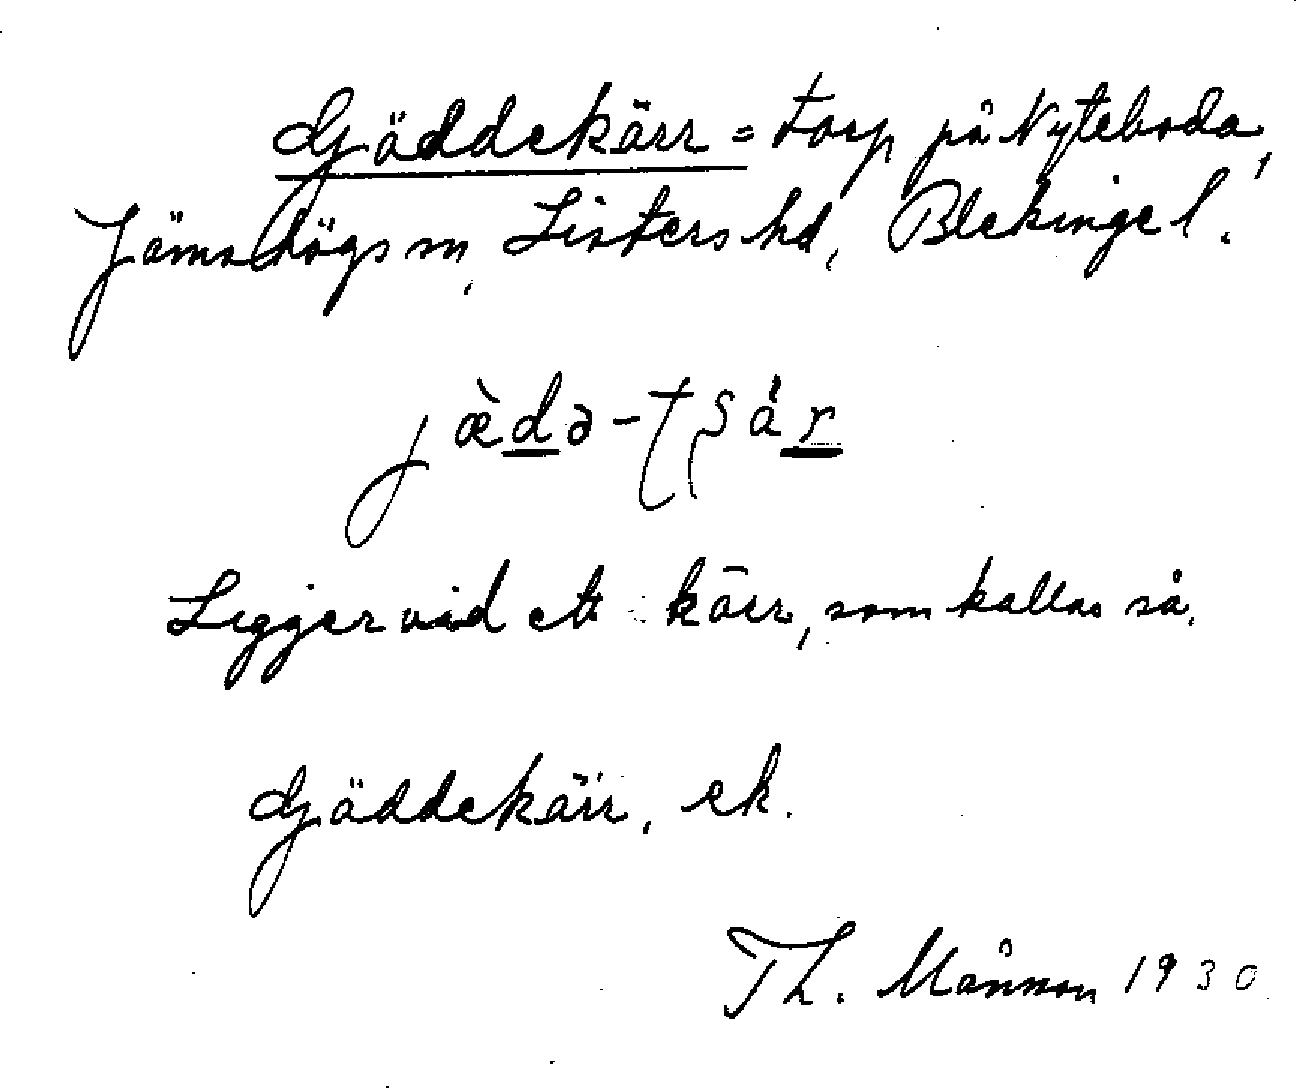 Gjäddekärr = torp på Nyteboda,
Jämshögs sn, Listers hd, Blekinge l.
jæ̀d̲ə-tʃár̲
Ligger vid ett kärr, som kallas så.
Gjäddekärr, ek.
Th. Månsson 1930